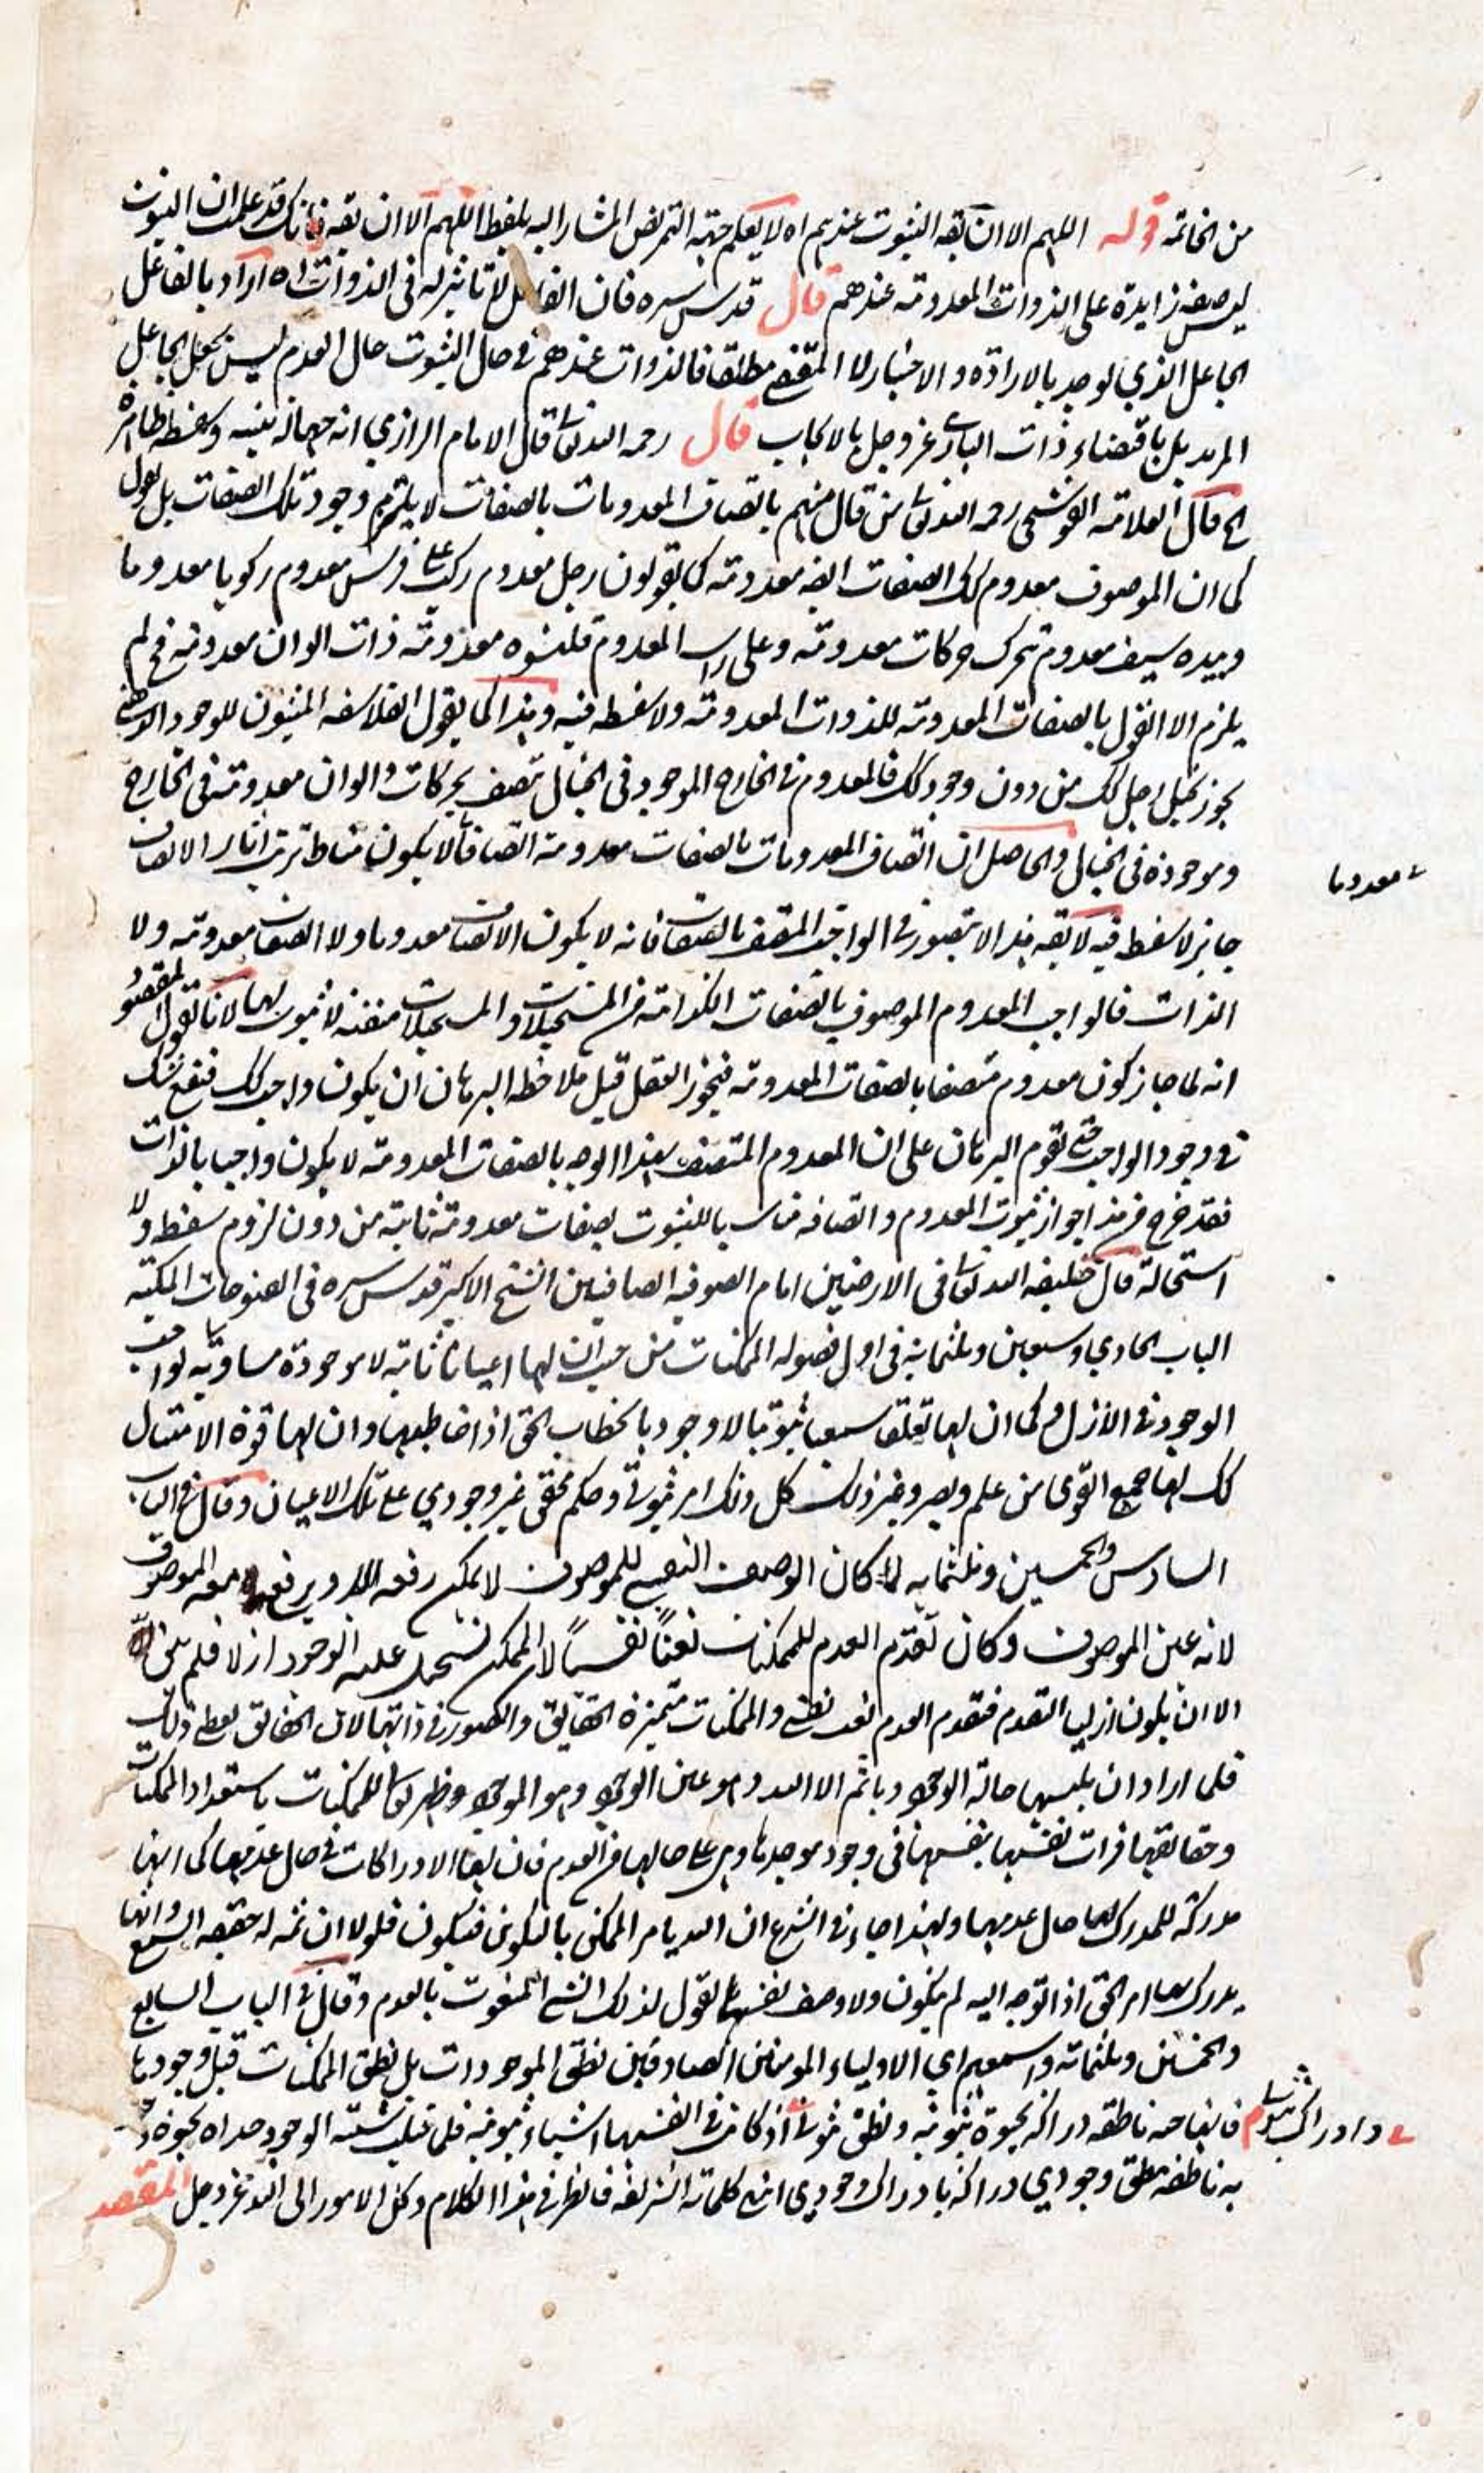 من الخاتمة قوله اللهم الا ان يقه الثبوت عندهم اه لا يعلم جهة التمريض المشار اليه بلفظ اللهم الا ان يقه فانك قد علمت ان الثبوت
ليس صفة زايدة على الذوات المعدومة عندهم قال قدس سره فان الفاعل لا تاثير له في الذوات اه اراد بالفاعل
الجاعل الذي يوجد بالارادة والاختيار لا المقتضي مطلقا فالذوات عندهم في حال الثبوت حال العدم ليس بجعل الجاعل
المريد بل باقتضاء ذات الباري عز وجل بالايجاب قال رحمه الله تعالى قال الامام الرازي انه جهالة بينة وسفسطة ظاهرة
الخ قال العلامة القوشجي رحمه الله تعالى من قال منهم باتصاف المعدومات بالصفات لا يلتزم وجود تلك الصفات بل يقول
كما ان الموصوف معدوم كك الصفات ايضه معدومة كما يقولون رجل معدوم ركب على فرس معدوم ركوبا معدوما
وبيده سيف معدوم يتحرك حركات معدومة وعلى راسه المعدوم قلنسوه معدومة ذات الوان معدومة فح لم
يلزم الا القول بالصفات المعدومة للذوات المعدومة ولا سفسطه فيه وهذا كما يقول الفلاسفه المثبتون للوجود الذهني
يجوز تخيل رجل كك من دون وجود كك فالمعدوم في الخارج الموجود في الخيال يتصف بحركات والوان معدومة في الخارج
وموجودة في الخيال والحاصل ان اتصاف المعدومات بالصفات معدومة اتصافا لا يكون مناط ترتب اثار الاتصاف
معدوما
جايز لا سفسطه فيه لا يقه هذا لا يتصور في الواجب المتصف بالصفات فانه لا يكون الاتصاف معدوما ولا الصفات معدومة ولا
الذات فالواجب المعدوم الموصوف بالصفات الكذائية من المستحيلات والمستحيلات منفية لا ثبوت لها لانا نقول المقصود
انه لما جاز كون معدوم متصفا بالصفات المعدومة فيجوز العقل قبل ملاحظة البرهان ان يكون واجب كك فيقع شك
في وجود الواجب حتى يقوم البرهان على ان المعدوم المتصف بهذا الوجه بالصفات المعدومة لا يكون واجبا بالذات
فقد خرج من هذا جواز ثبوت المعدوم واتصافه مناسبا للثبوت بصفات معدومة ثابتة من دون لزوم سفسطه ولا
استحالة قال خليفة الله تعالى في الارضين امام الصوفيه الصافيين الشيخ الاكبر قدس سره في الفتوحات المكية
الباب الحادي وسبعين وثلثمائة في اول فصوله الممكنات من حيث ان لها اعيانا ثابتة لا موجودة مساوقة لواجب
الوجود في الازل وكما ان لها تعلقا سمعيا ثبوتيا لا وجوديا لخطاب الحق اذا خاطبها وان لها قوة الامتثال
كك لها جميع القوى من علم وبصر وغير ذلك كل ذلك امر ثبوتي وحكم محقق غير وجودي على تلك الاعيان وقال في الباب
السادس والخمسين وثلثمائة لما كان الوصف النفسي للموصوف لا يمكن رفعه الا ويرتفع معه الموصوف
لانه عين الموصوف وكان تقدم العدم للممكنات نعتا نفسيا لان الممكن يستحيل عليه الوجود ازلا فلم يبق له
الا ان يكون ازلي التقدم فتقدم العدم له نعت نفسي والممكنات متميزة الحقايق والصور في ذاتها لان الحقايق يعطي ذلك
فلما اراد ان يلبسها حالة الوجود وما ثم الا الله وهو عين الوجود وهو الموجود وظهر تعالى للممكنات باستعداد الممكنات
وحقايقها فرات نفسها بنفسها في وجود موجدها وهي على حالها من العدم فان لها الادراكات في حال عدمها كما انها
مدركة للمدرك لها حال عدمها ولهذا جاء في الشرع ان الله يامر الممكن بالتكوين فيتكون فلولا ان ثمه له حقيقه السمع وانها
مدرك بها امر الحق اذا توجه اليه لم يتكون ولا وصف نفسه بالقول لذلك الشي المنعوت بالعدم وقال في الباب السابع
والخمسين وثلثمائة واسمعهم اي الاولياء المومنين الصادقين نطق الموجودات بل نطق الممكنات قبل وجودها
فانها حية ناطقه دراكه بحيوة ثبوتيه ونطق ثبوتي اذ كانت في انفسها اشياء ثبوتيه فلما قبلت شيئية الوجود حداه بحيوة
وادراك ثبوتي
به ناطقه بنطق وجودي دراكة بادراك وجودي انتهى كلماته الشريفه فانظر في هذا الكلام وكل الامور الى الله عز وجل المقصد